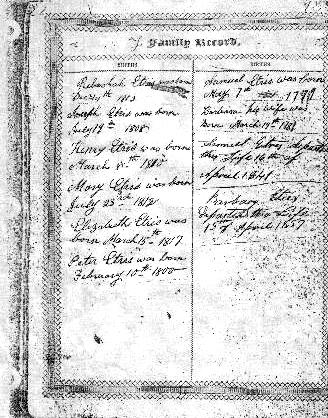 Family Record.
BIRTHS
Rebeckah Etris was born
1803
Joseph Etris was born
July 19th 1808
Henry Etris was born
March 8th 1810
Mary Etris was born
July 23rd 1812
Elizabeth Etris was
born March 18th 1817
Peter Etris was born
February 10th 1800
BIRTHS
Samuel Etris was born
May 7th 1777
Barbara his wife was
Born March 19th
Samuel Etris departed
this Life 16th of
April 1841
Barbary Etris
departed this Life
1st of April 1857